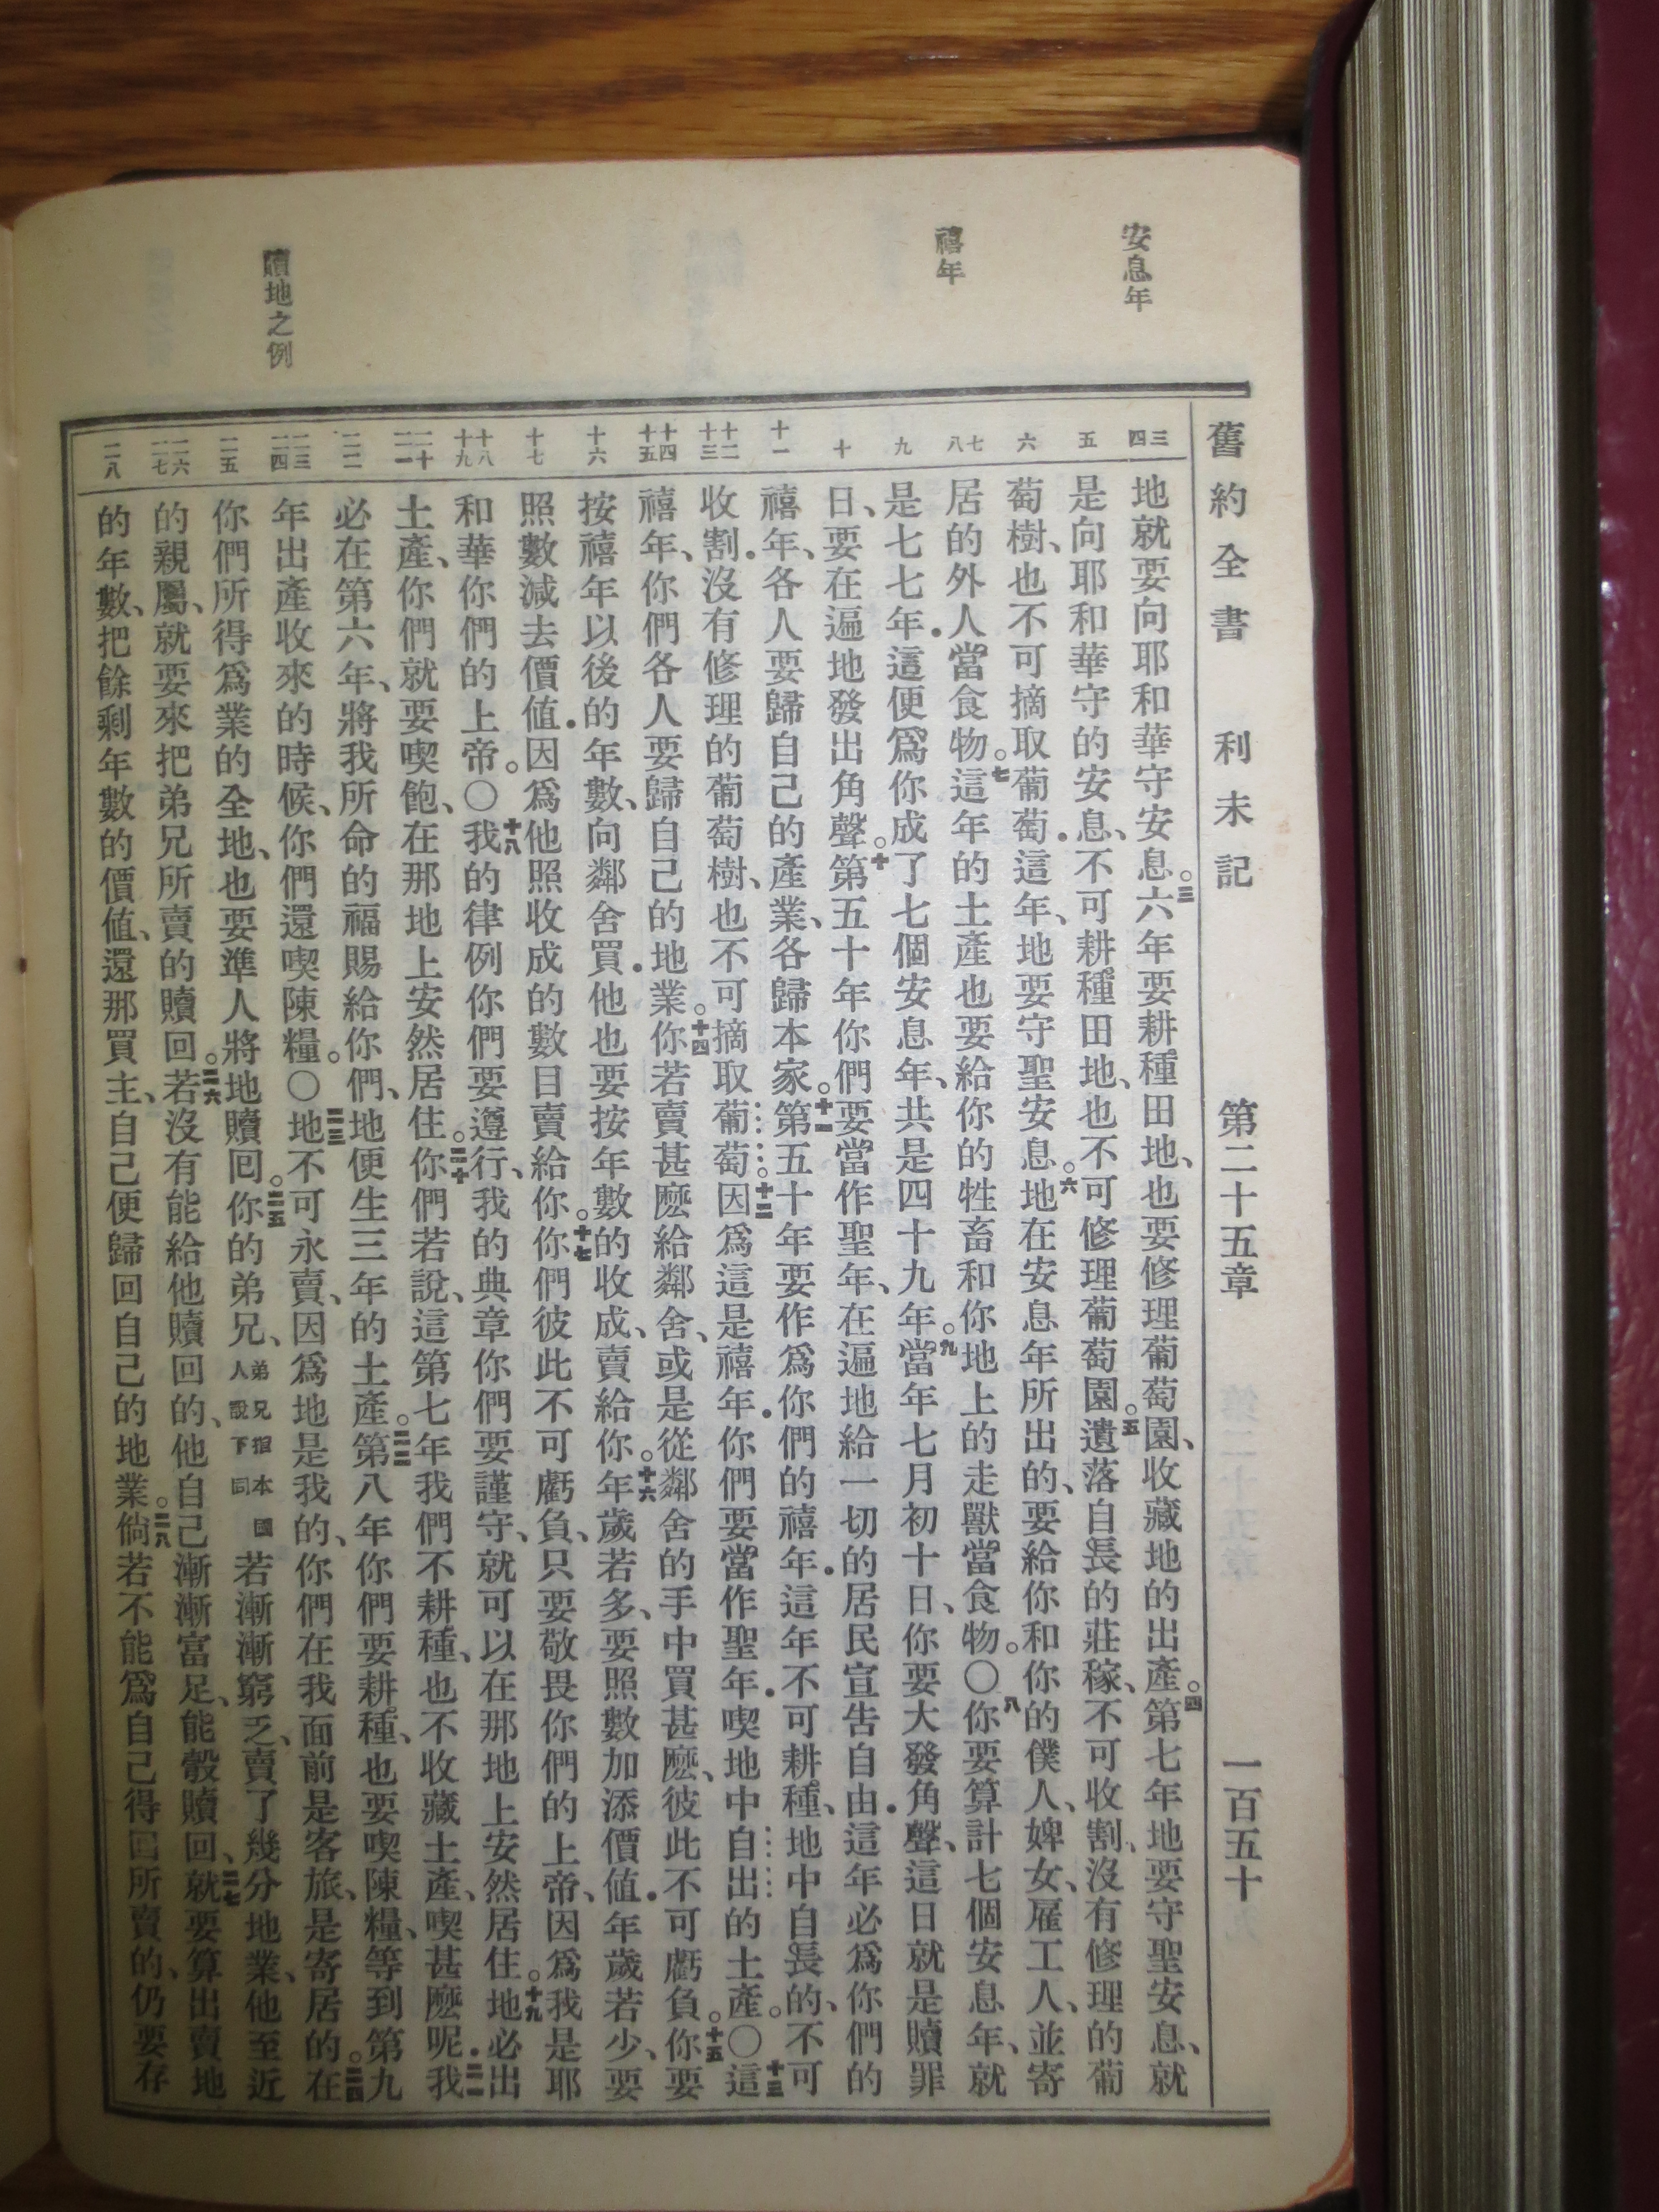 安息年
禧年
贖地之例
舊約全書 利未記 第二十五章 一百五十
三 四
五
六
七 八
九
十
十一
十二 十三
十四 十五
十六
十七
十八 十九
二十 二一
二二
二三 二四
二五
二六 二七
二八
地就要向耶和華守安息。三六年要耕種田地、也要修理葡萄園、收藏地的出產。四第七年地要守聖安息、就
是向耶和華守的安息、不可耕種田地、也不可修理葡萄園。五遺落自長的莊稼、不可收割、沒有修理的葡
萄樹、也不可摘取葡萄．這年、地要守聖安息。六地在安息年所出的、要給你和你的僕人、婢女、雇工人、並寄
居的外人當食物。七這年的土產也要給你的牲畜和你地上的走獸當食物。〇八你要算計七個安息年、就
是七七年．這便爲你成了七個安息年、共是四十九年。九當年七月初十日、你要大發角聲、這日就是贖罪
日、要在遍地發出角聲。十第五十年你們要當作聖年、在遍地給一切的居民宣告自由．這年必爲你們的
禧年、各人要歸自己的產業、各歸本家。十一第五十年要作爲你們的禧年．這年不可耕種、地中自長的、不可
收割．沒有修理的葡萄樹、也不可摘取葡萄。十二因爲這是禧年．你們要當作聖年．喫地中自出的土產。〇十三這
禧年、你們各人要歸自己的地業。十四你若賣甚麽給鄰舍、或是從鄰舍的手中買甚麽、彼此不可虧負。十五你要
按禧年以後的年數、向鄰舍買．他也要按年數的收成、賣給你。十六年歲若多、要照數加添價值．年歲若少、要
照數減去價值．因爲他照收成的數目賣給你。十七你們彼此不可虧負、只要敬畏你們的上帝、因爲我是耶
和華你們的上帝。〇十八我的律例你們要遵行、我的典章你們要謹守、就可以在那地上安然居住。十九地必出
土產、你們就要喫飽、在那地上安然居住。二十你們若說、這第七年我們不耕種、也不收藏土產、喫甚麽呢．二一我
必在第六年、將我所命的福賜給你們、地便生三年的土產。二二第八年你們要耕種、也要喫陳糧、等到第九
年出產收來的時候、你們還喫陳糧。〇二三地不可永賣、因爲地是我的、你們在我面前是客旅、是寄居的。二四在
你們所得爲業的全地、也要準人將地贖回。二五你的弟兄、弟兄指本國人說下同若漸漸窮乏、賣了幾分地業、他至近
的親屬、就要來把弟兄所賣的贖回。二六若沒有能給他贖回的、他自己漸漸富足、能彀贖回、二七就要算出賣地
的年數、把餘剩年數的價值、還那買主、自己便歸回自己的地業。二八倘若不能爲自己得回所賣的、仍要存